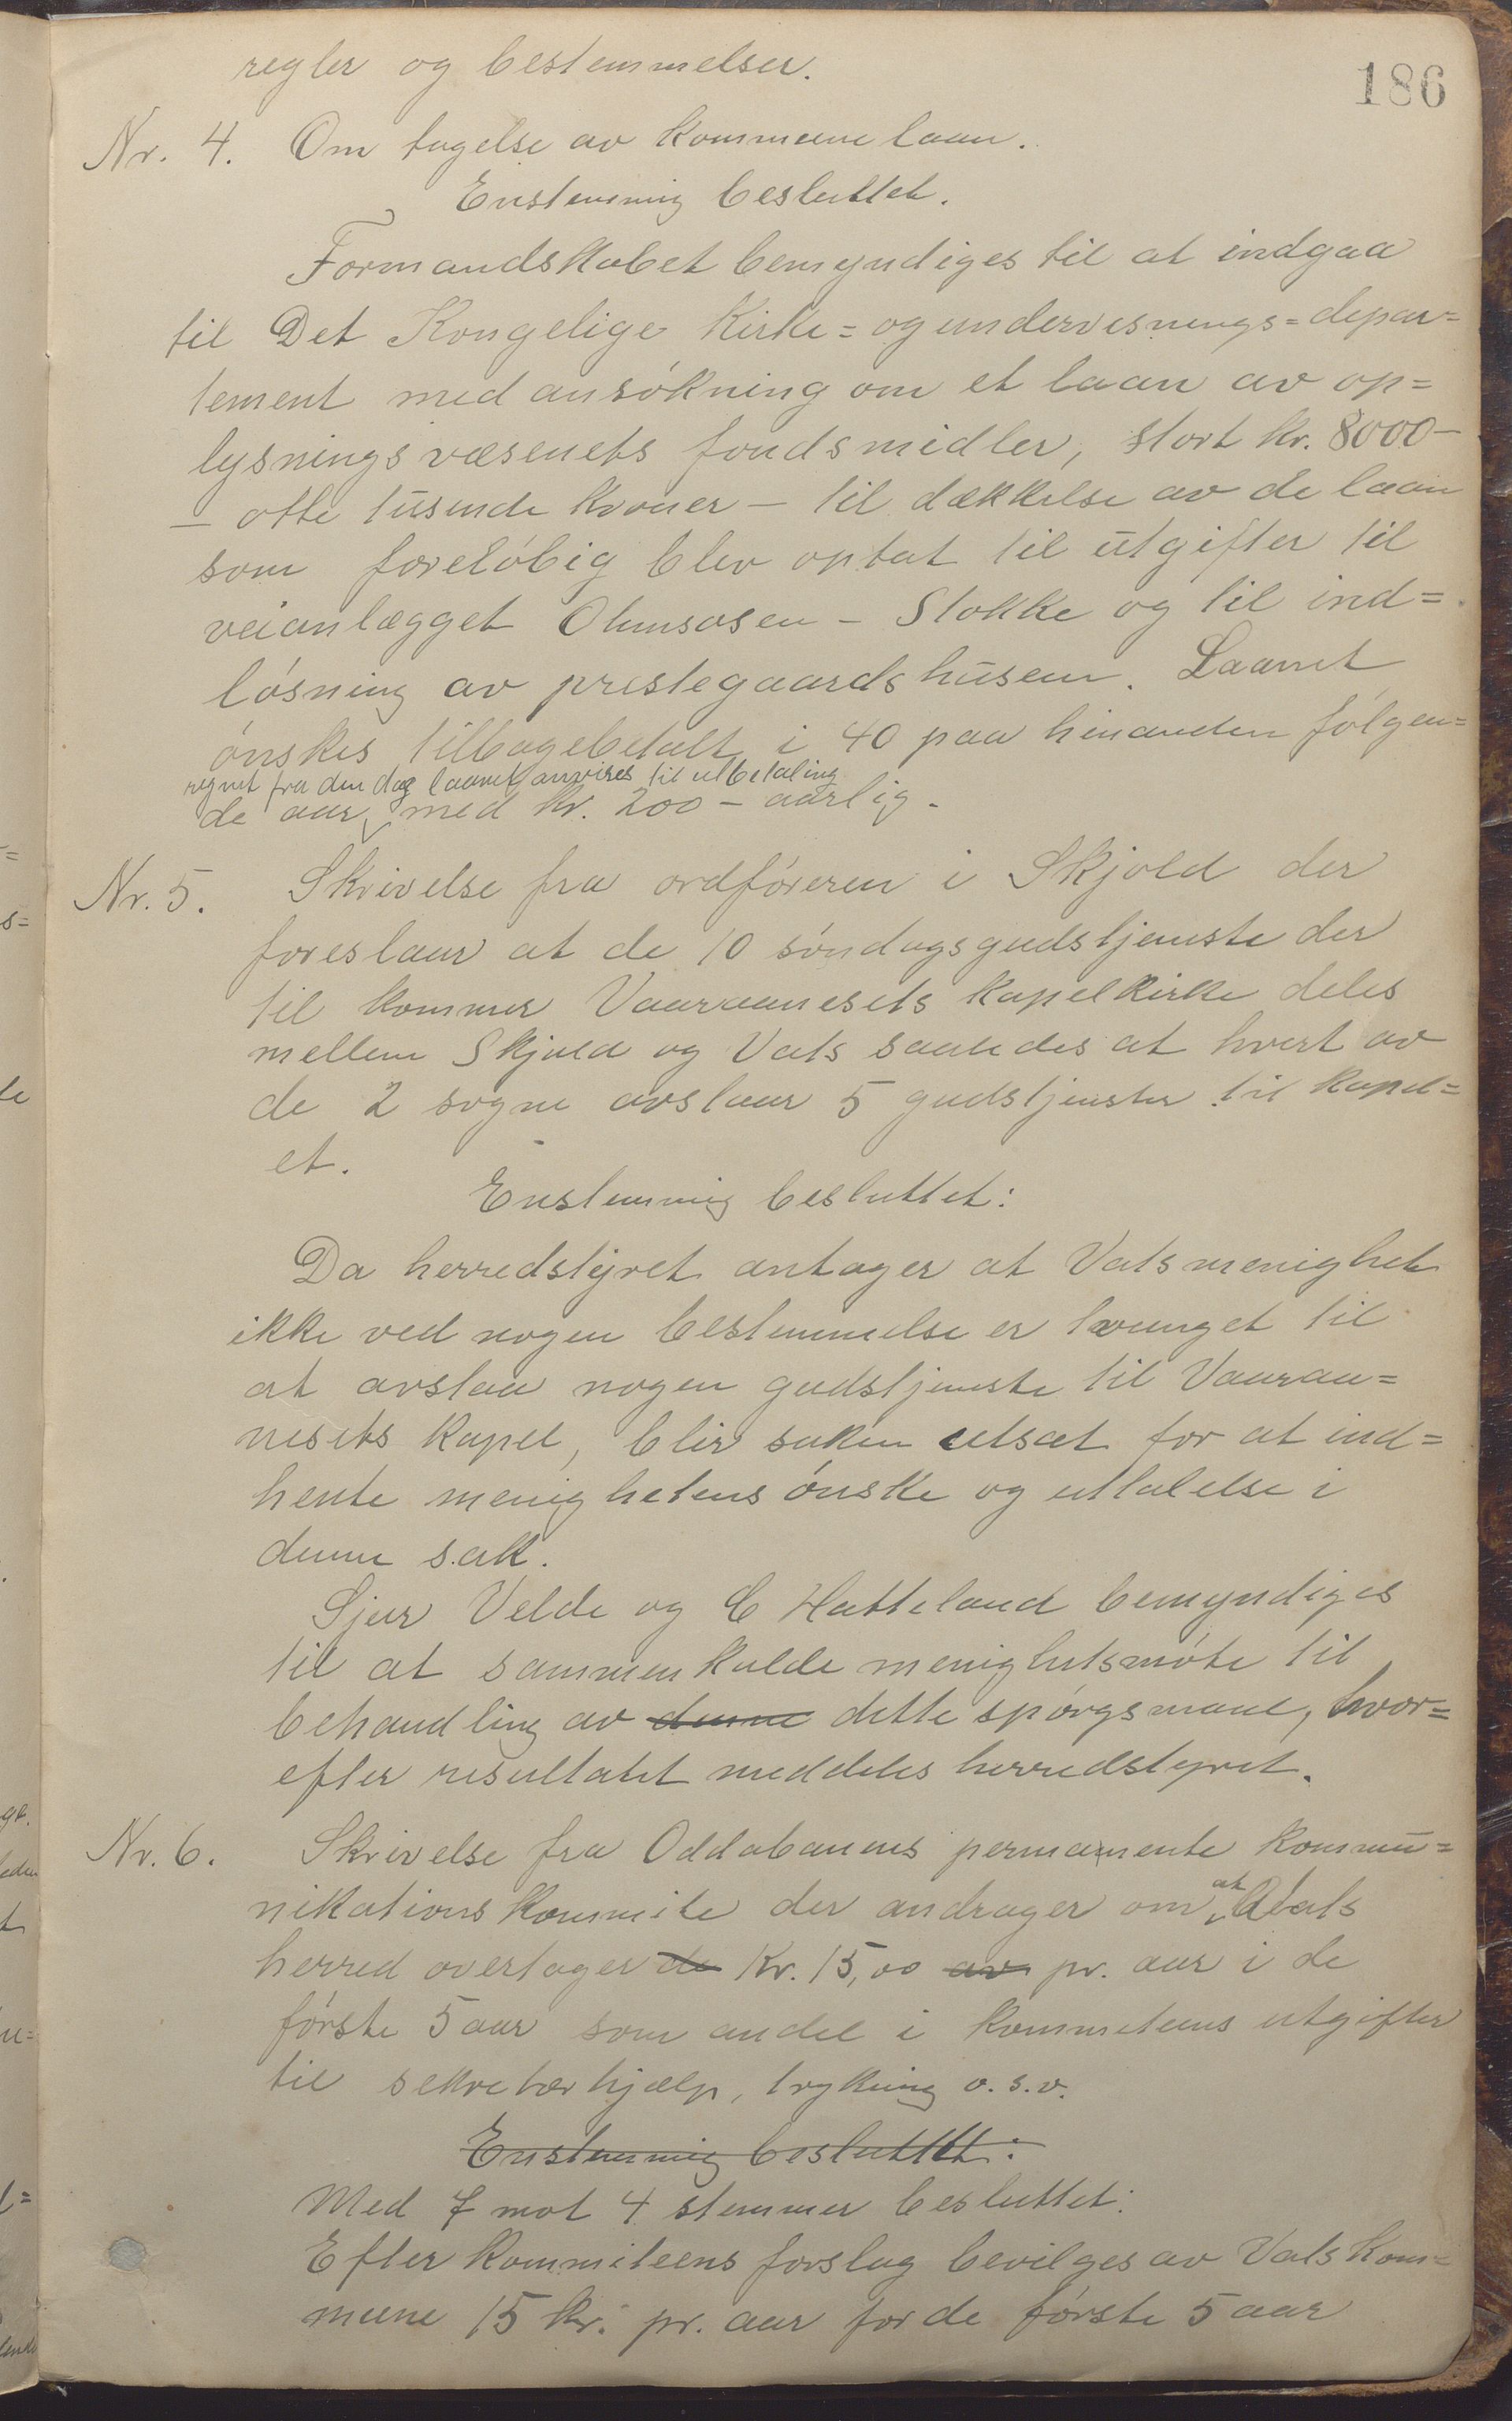 186
regler og bestemmelser.
Nr. 4. Om tagelse av kommunelaan.
Enstemmig besluttet.
Formandskabet bemyndiges til at indgaa
til Det Kongelige Kirke= og undervisnings=depar=
tement med ansökning om et laan av op=
lysningsvæsenets fondsmidler, stort kr. 8000–
– otte tusende kroner – til dækkelse av de laan
som foreløbig blev optat til utgifter til
veianlægget Olmsosen – Stokke og til ind=
løsning av prestegaardshusene. Laanet
ønskes tilbagebetalt i 40 paa hinanden følgen=
regnet fra den dag laanet anvises til utbetaling
de aar, med kr. 200 – aarlig.
Nr. 5. Skrivelse fra ordføreren i Skjold der
foreslaar at de 10 søndagsgudstjenste der
til kommer Vaaraanesets kapelkirke deles
mellem Skjold og Vats saaledes at hvert av
de 2 sogne avslaar 5 gudstjenster til kapel=
et.
Enstemmig besluttet:
Da herredstyret antager at Vats menighet
ikke ved nogen bestemmelse er tvunget til
at avslaa nogen gudstjenste til Vaaraa=
nesets kapel, blir saken utsat for at ind=
hente menighetens ønske og uttalelse i
denne sak.
Sjur Velde og C Hatteland bemyndiges
til at sammenkalde menighetsmøte til
behandling av denne dette spørgsmaal, hvor=
efter resultatet meddeles herredstyret.
Nr. 6. Skrivelse fra Oddabanens permanente kommu=
nikationskommite der andrager om at Vats
herred overtager de Kr. 15,00 av pr. aar i de
første 5 aar som andel i kommiteens utgifter
til sekretærhjælp, trykning o.s.v.
Enstemmig besluttet:
Med 7 mot 4 stemmer besluttet:
Efter kommiteens forslag bevilges av Vats kom=
mune 15 kr. pr. aar for de første 5 aar